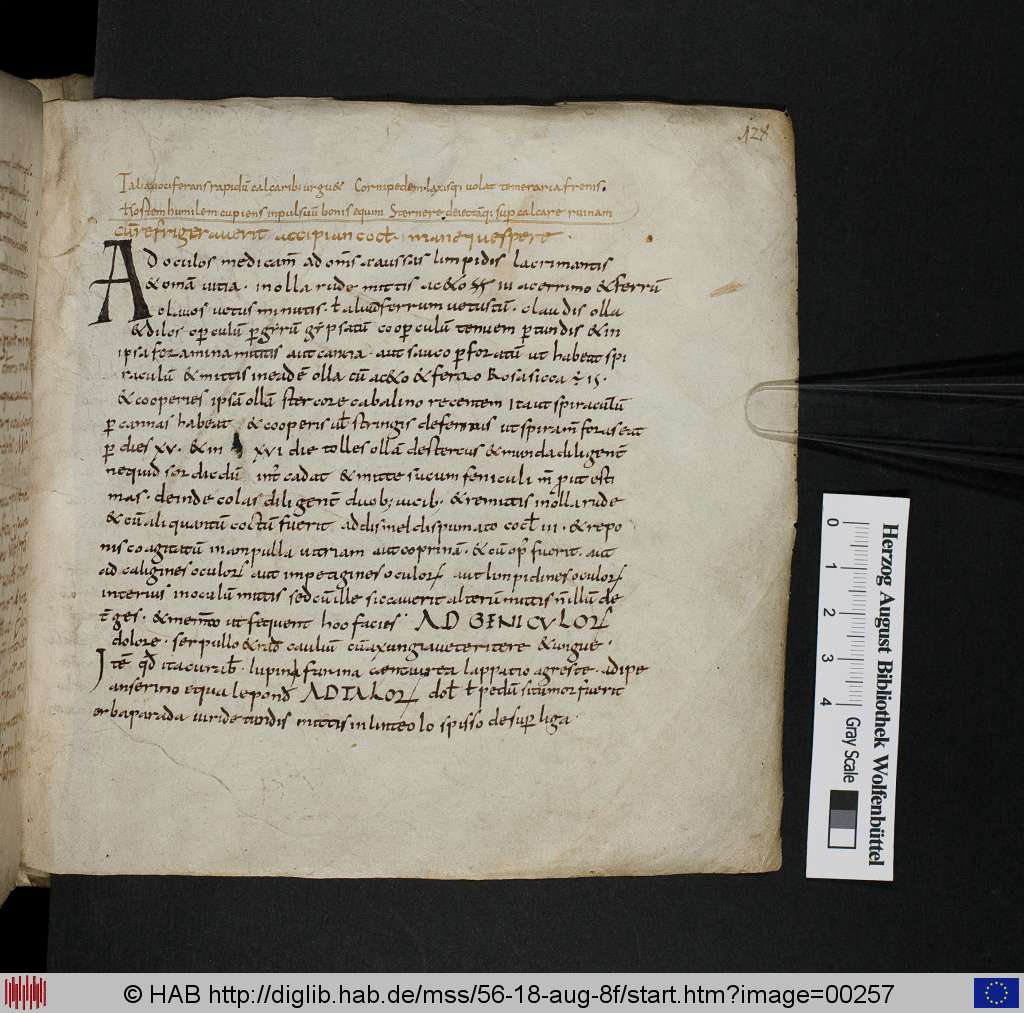 128
Talia vociferans rapidū calcarib; urgues Cornipedem. laxisq; volat temeraria frenis.
Hostem humilem cupiens inpulsuū bonis equim Sternere deiectāq; sup calcare ruinam
cū refrigeraverit accipian cocł. mane
AD oculos medicam̄ ad om̄s caussas limpidis lacrimantis
& om̄a vitia. in olla rude mittis ac&o iii acerrimo & ferrū
clavos vetus minutis. ł aliud ferrum vetustū. claudis olla
& dilos opculū p gyrū gypsatū coopculū tenuem ptundis & in
ipsa foramina mittis aut canna. aut sauco pforatū ut habeat spi
raculū & mittis in eadē olla cū ac&o & ferro Rosa sicca
& cooperies ipsā ollā stercore cabalino recentem Ita ut spiraculū
p cannas habeat & cooperis ut spiram foras eat
p dies xv. & in xvi die tolles ollā de stercus & munda diligent
nequid sordic dū int cadat & mitte sucum feniculi
mas. deinde colas diligent duob; vicib; & remittis in olla rude
& cū aliquantū coctū fuerit addis mel dispumato cocł iii. & repo
nis coagitatū in ampulla vitriam aut coprinā. & cū op fuerit. aut
ad caligines oculor aut impetigines oculor aut limpidines oculor
interius in oculū mittis sed cū ille siccaverit alterū mittis n̄ illū de
tges. & ut sequent hoc facies AD GENICULOR
dolore. serpullo & cauliū cū axungia veteri tere & ungue.
Itē qđ ita curabł. lupina farina centauria lappatio agreste. adipe
anserino equale pond AD TALOR doł ł pedū si tumor fuerit
erba parada viride tundis mittis in linteolo spisso desup liga.
0 1 2 3 4
Gray Scale
Herzog August Bibliothek Wolfenbüttel
© HAB http://diglib.hab.de/mss/56-18-aug-8f/start.htm?image=00257